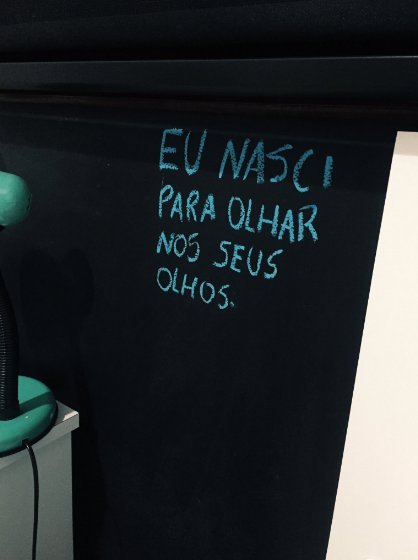 EU NASCI
PARA OLHAR
NOS SEUS
OLHOS.